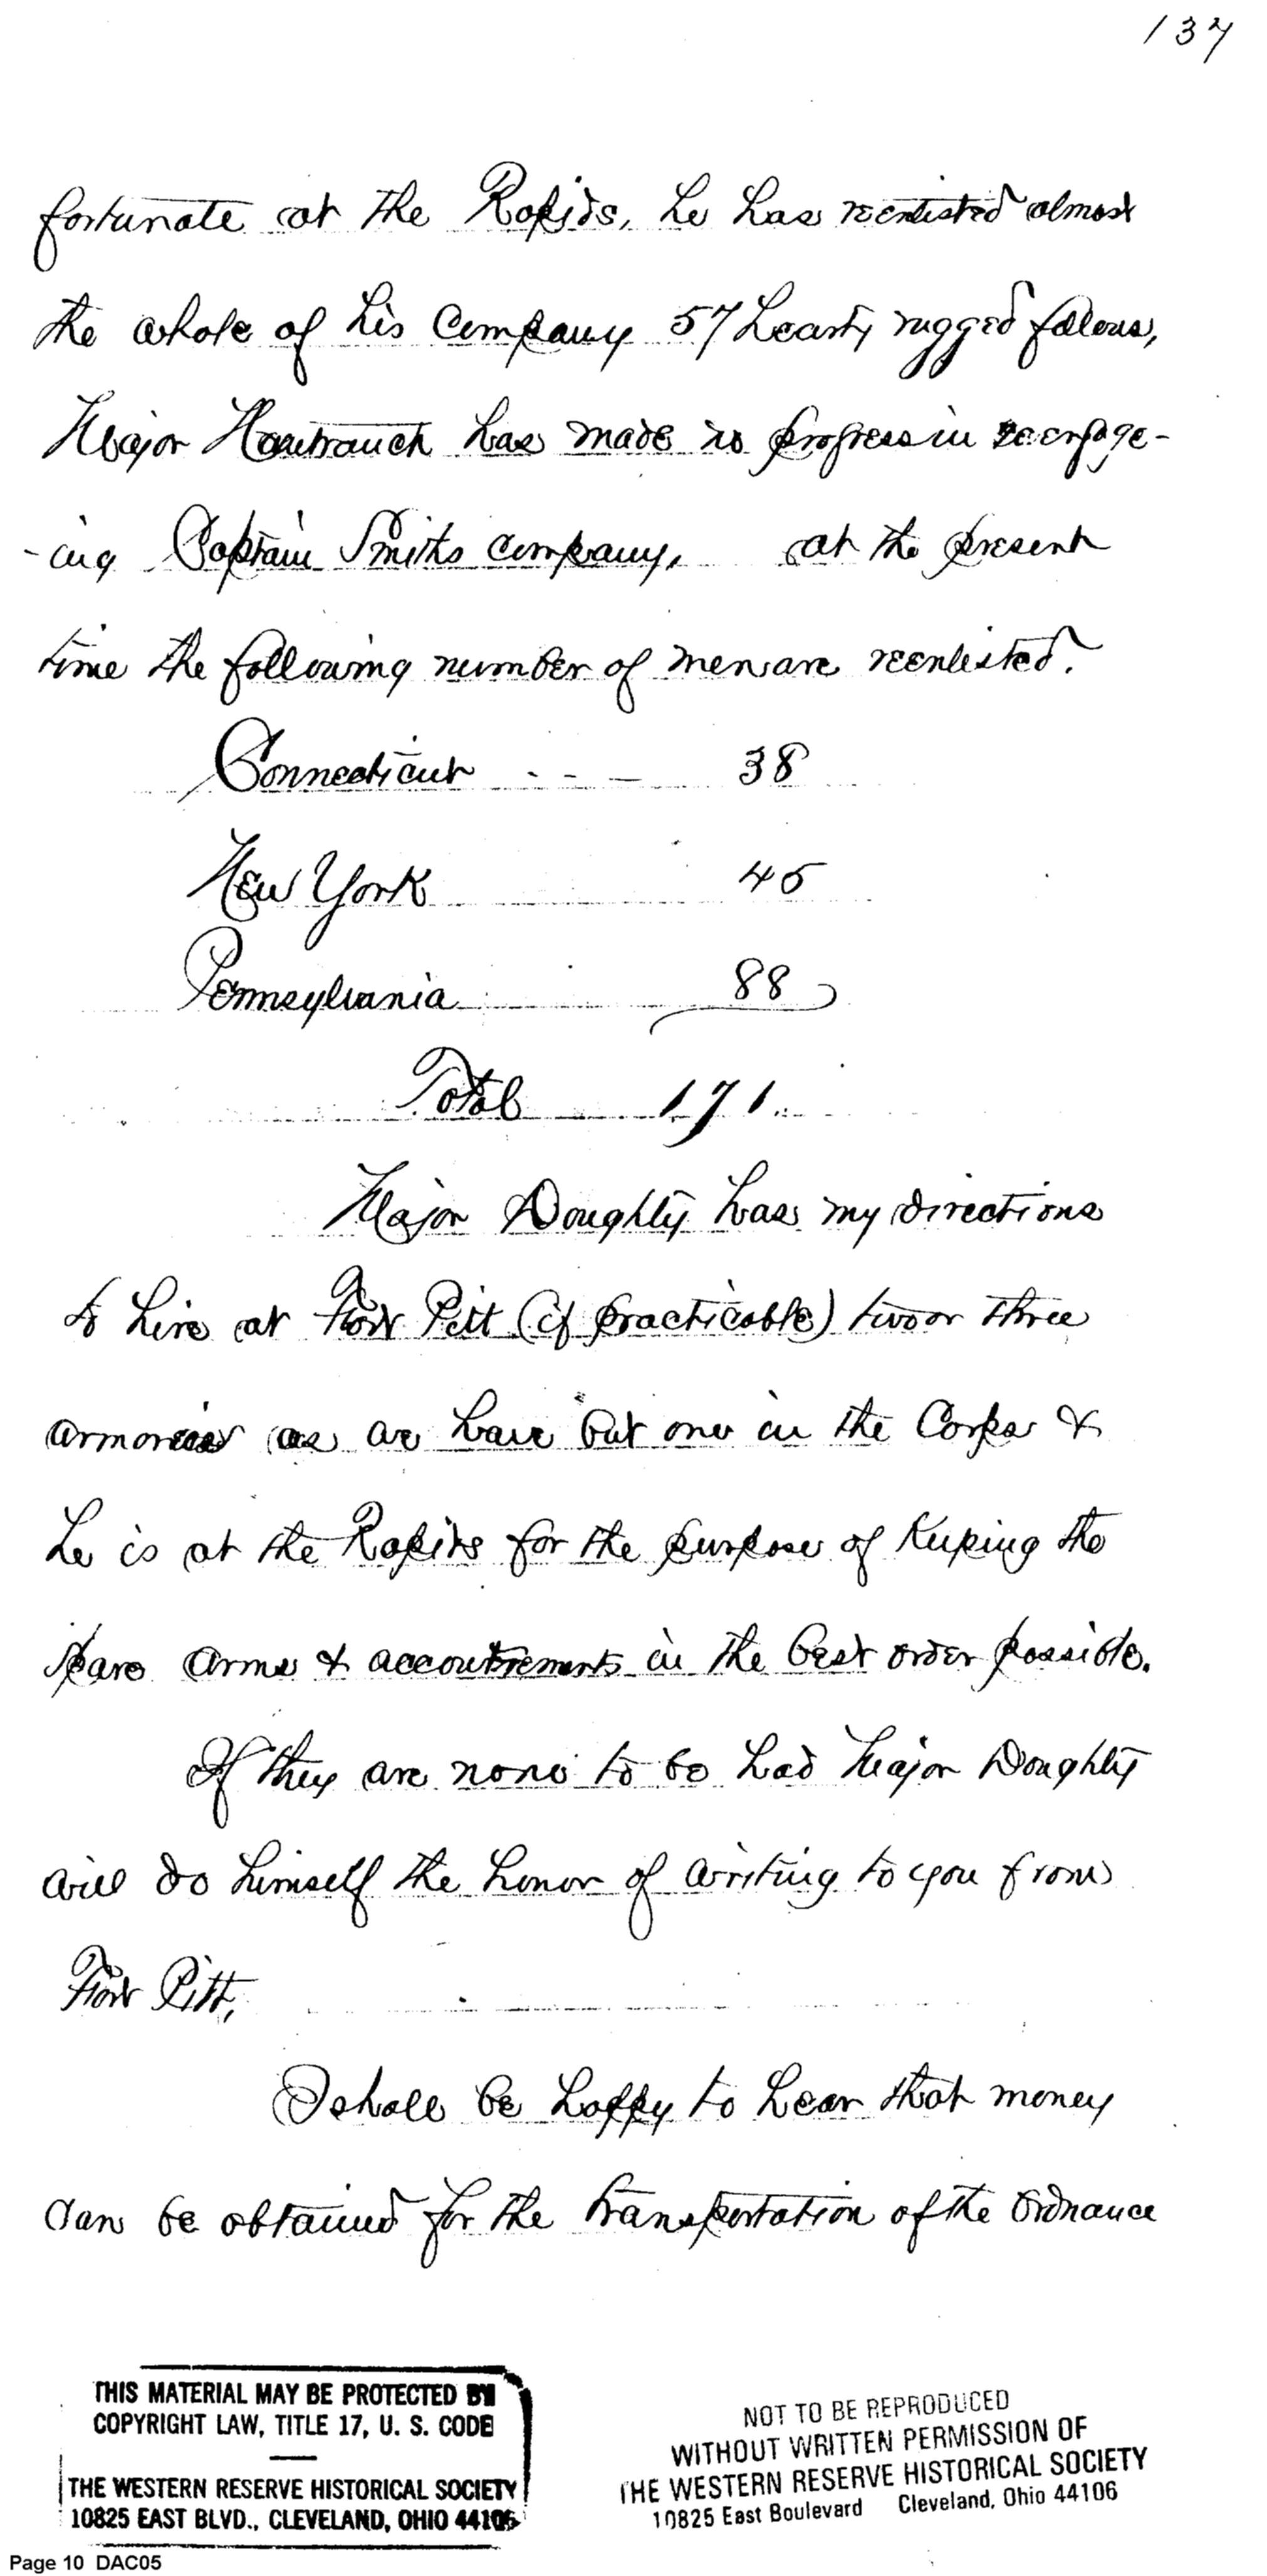 137
fortunate at the Rapids, he has reenlisted almost
the whole of his Company 57 hearty rugged fellows,
Major Hamtramck has made no progress in reengage-
-ing Captain Smiths company, at the present
time the following number of men are reenlisted.
Connecticut - - - 38
New York 45
Pennsylvania 88
Total 171
Major Doughty has my directions
to hire at Fort Pitt (if practicable) two or three
as we have but one in the Corps &
he is at the Rapids for the purpose of keeping the
spare arms & accoutrements in the best order possible.
If they are none to be had Major Doughty
will do himself the honor of writing to you from
Fort Pitt,
I shall be happy to hear that money
can be obtained for the transportation of the Ordnance
THIS MATERIAL MAY BE PROTECTED BY
COPYRIGHT LAW, TITLE 17, U. S. CODE
THE WESTERN RESERVE HISTORICAL SOCIETY
10825 EAST BLVD., CLEVELAND, OHIO 44106
NOT TO BE REPRODUCED
WITHOUT WRITTEN PERMISSION OF
THE WESTERN RESERVE HISTORICAL SOCIETY
10825 East Boulevard Cleveland, Ohio 44106
Page 10 DAC05